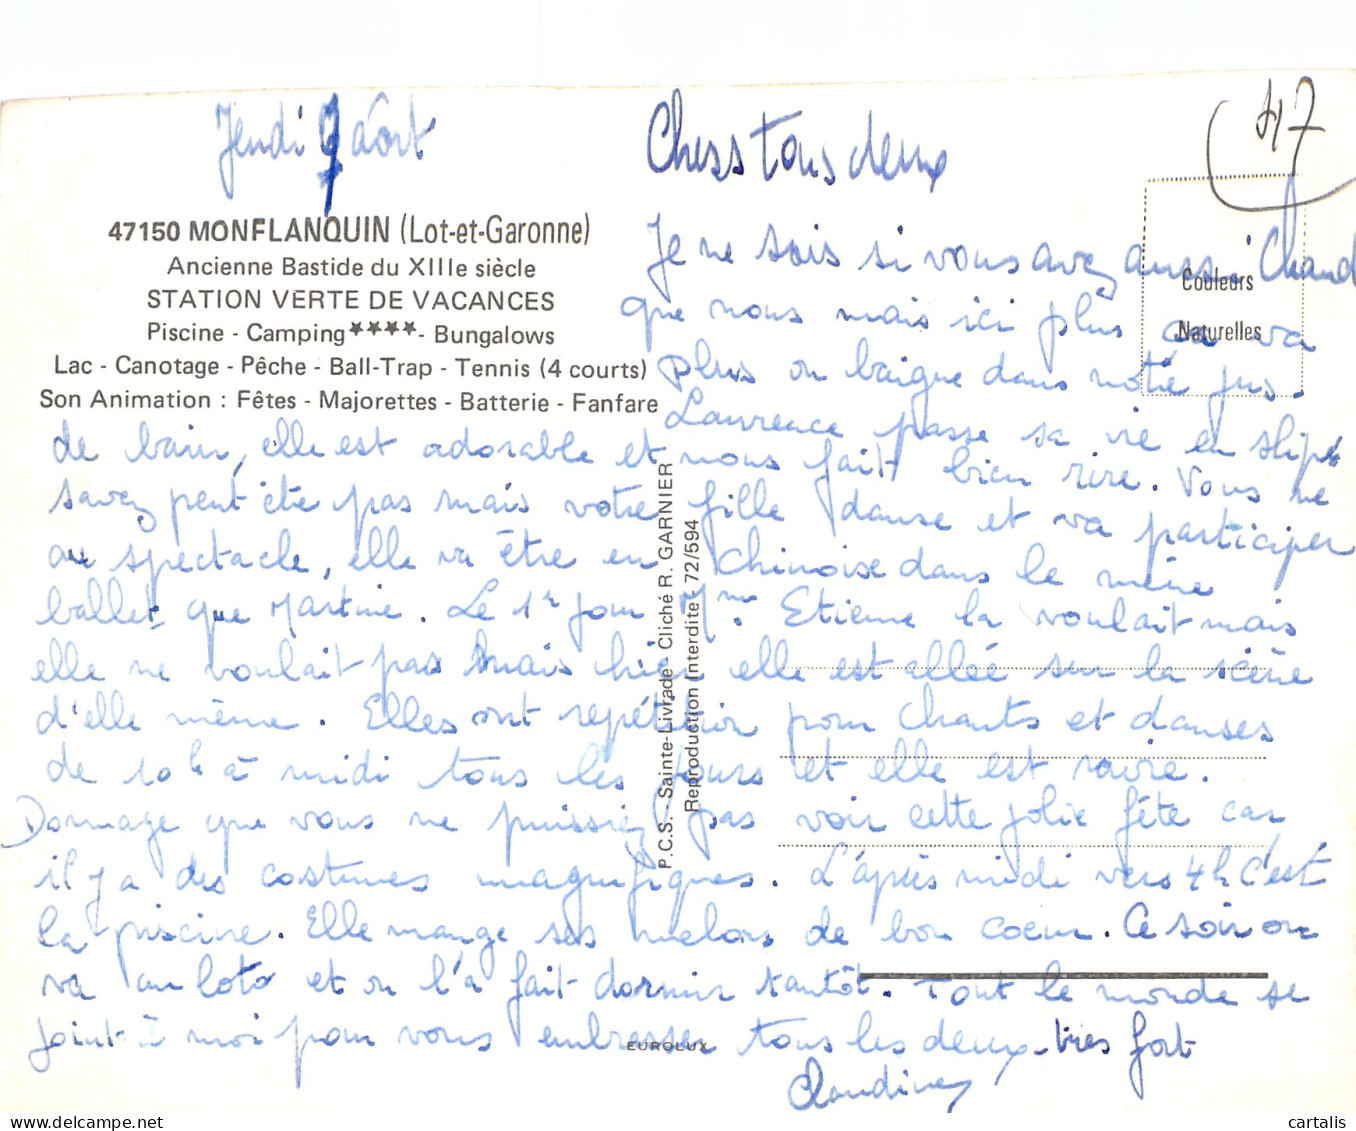 47
Jeudi 7 août
Chers tous deux
47150 MONFLANQUIN (Lot-et-Garonne)
Ancienne Bastide du XIIIe siècle
STATION VERTE DE VACANCES
Piscine - Camping **** - Bungalows
Lac - Canotage - Pêche - Ball-Trap - Tennis (4 courts)
Son Animation : Fêtes - Majorettes - Batterie - Fanfare
Couleurs
Naturelles
Je ne sais si vous avez aussi Chaud
que nous mais ici plus ça va
plus on baigne dans notre jus.
Laurence passe sa vie en slip
de bain, elle est adorable et nous fait bien rire. Vous ne
savez peut être pas mais votre fille danse et va participer
au spectacle, elle va être en Chinoise dans le même
ballet que Martine. Le 1er jour Mme Etienne la voulait mais
elle ne voulait pas mais hier elle est allée sur la scène
d'elle même. Elles ont repétition pour chants et danses
de 10h à midi tous les jours et elle est ravie.
Dommage que vous ne puissiez pas voir cette jolie fête car
il y a des costumes magnifiques. L'après midi vers 4h c'est
la piscine. Elle mange ses melons de bon coeur. Ce soir on
va au loto et on l'a fait dormir tantôt. Tout le monde se
joint à moi pour vous embrasser tous les deux très fort
Claudine
P.C.S. - Sainte-Livrade - Cliché R. GARNIER
Reproduction Interdite - 72/594
EUROLUX
cartalis